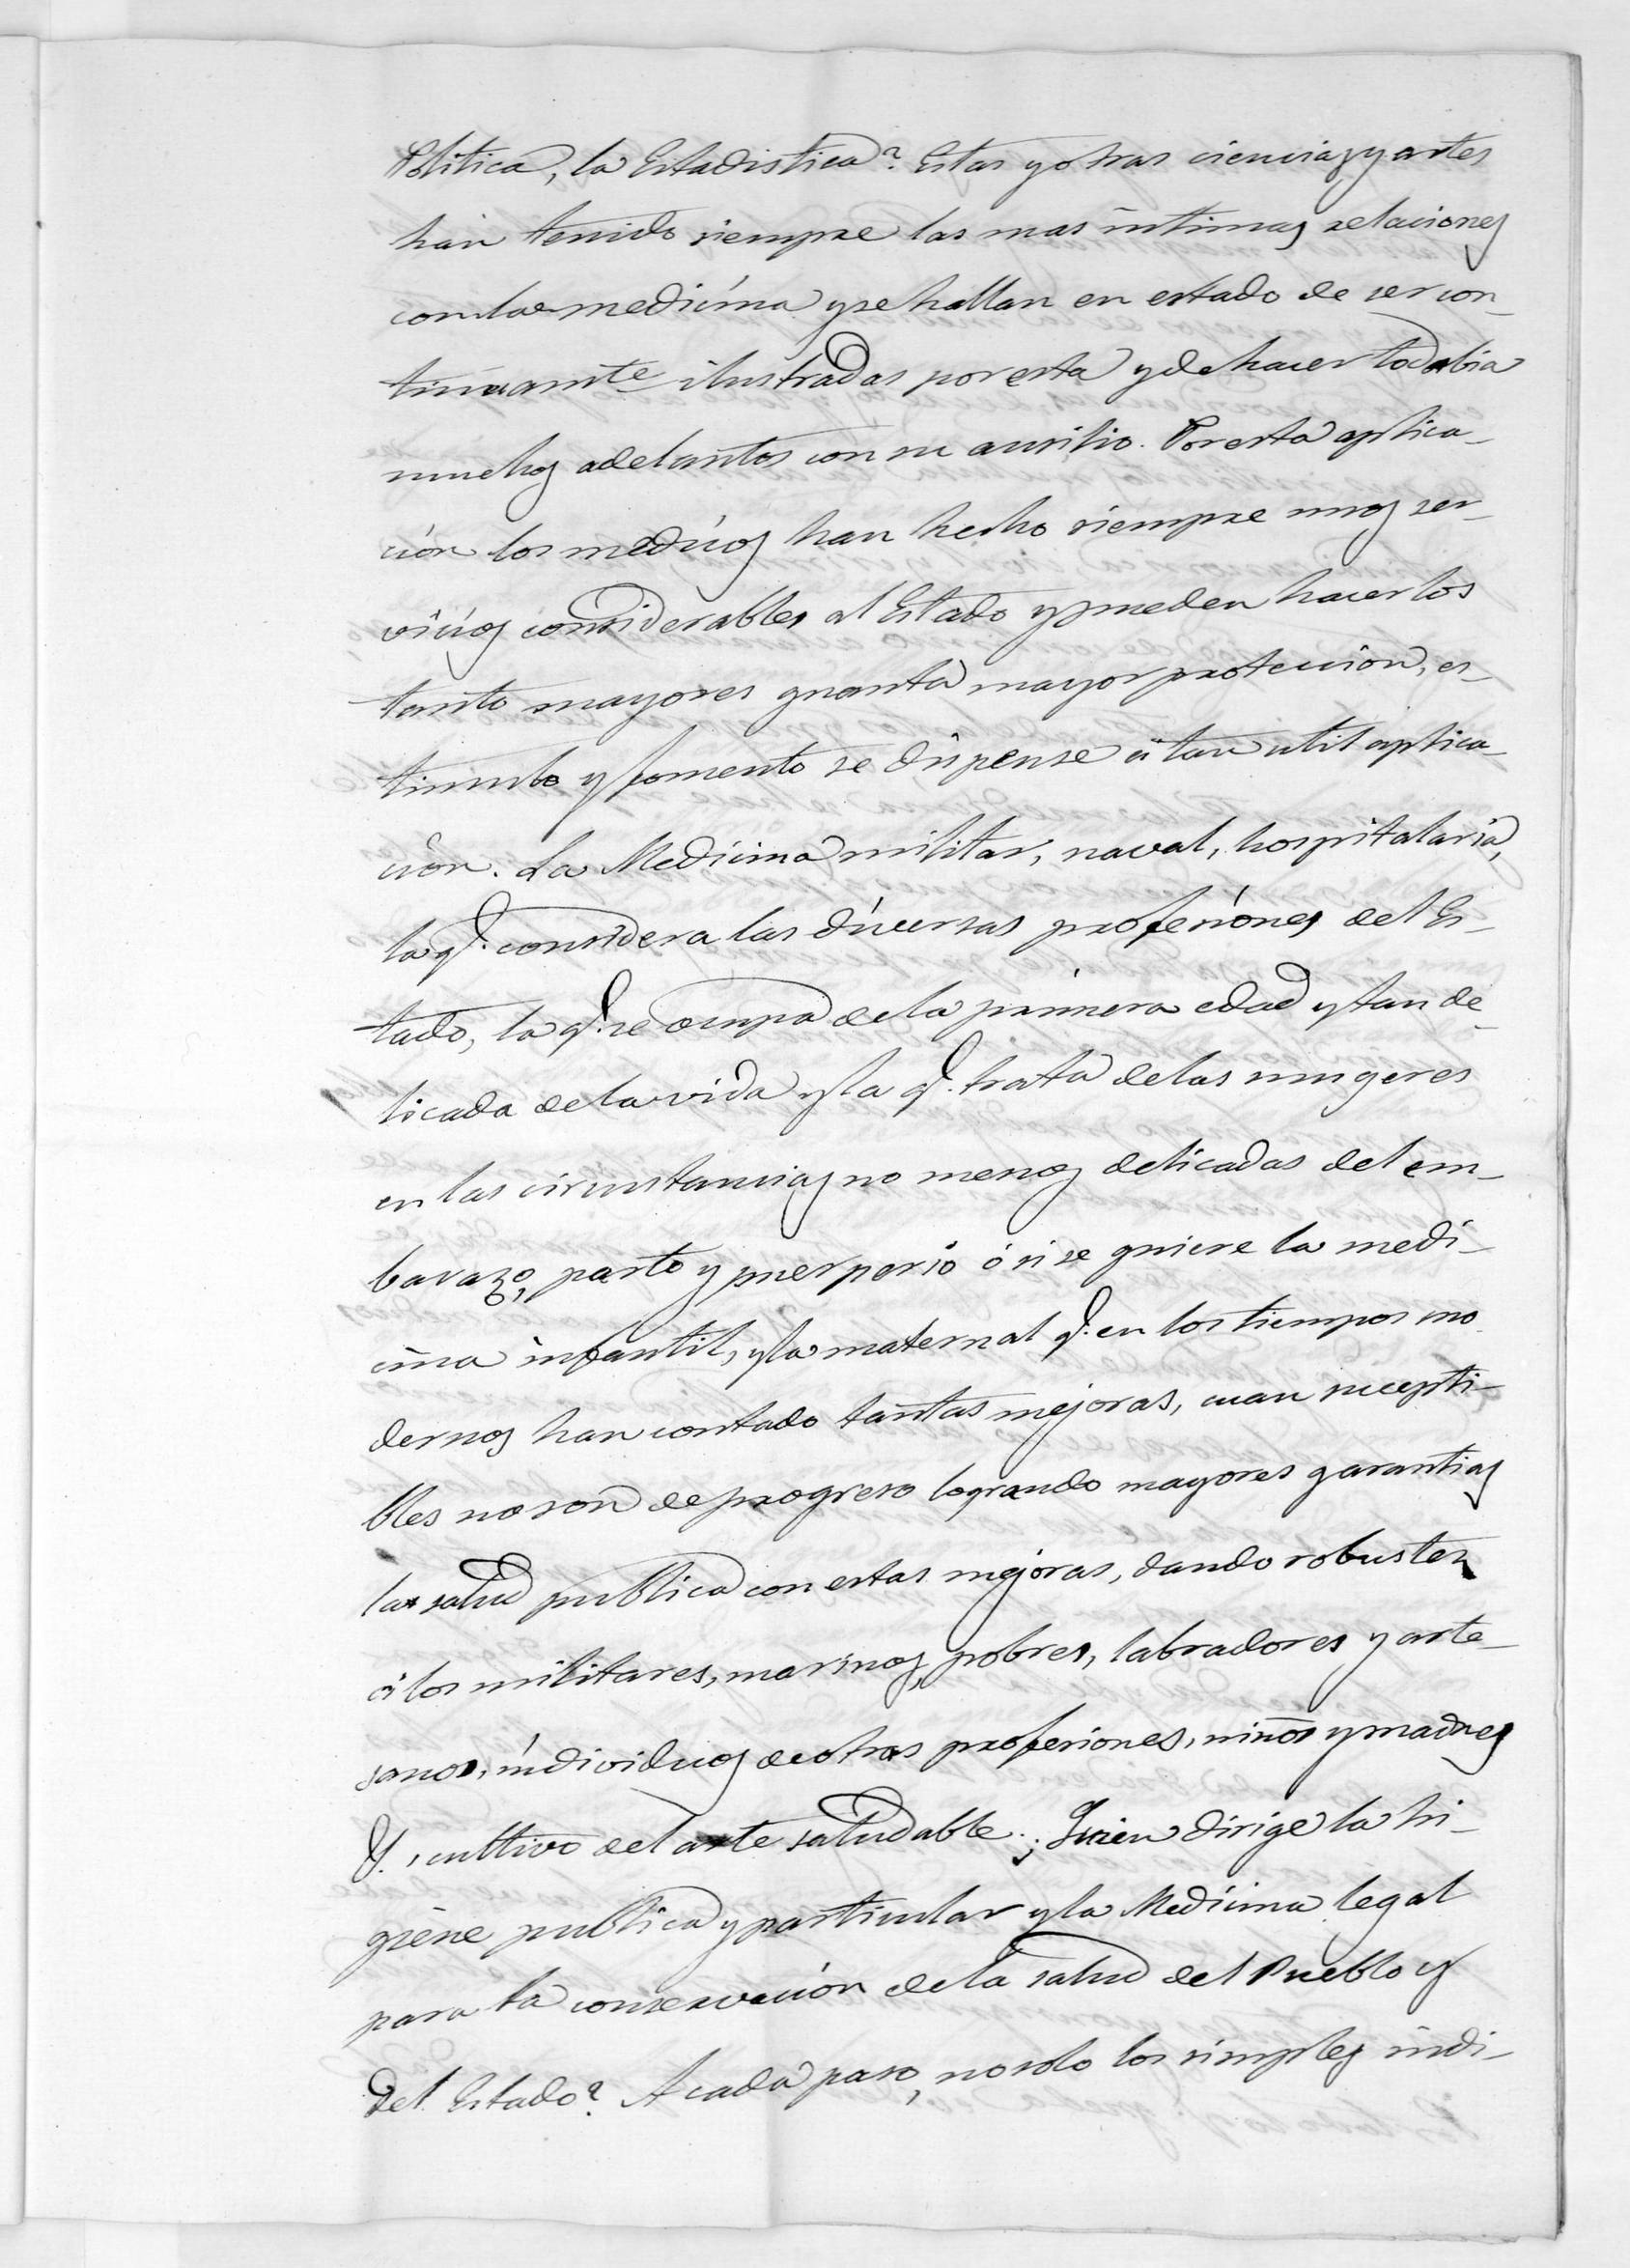 Politica, la Estadistica? Estas y otras ciencias y artes
han tenido siempre las mas intimas relaciones
con la medicina y se hallan en estado de ser con-
tinuamte ilustradas por esta y de hacer todabia
muchos adelantos con su ausilio. Por esta aplica-
ción los medicos han hecho siempre unos ser-
vicios considerables al Estado y pueden hacerlos
tanto mayores quanta mayor proteccion, es-
timulo y fomento se dispense á tan util aplica-
cion. La Medicina militar, naval, hospitalaria,
la q.e considera las diversas profesiones del Es-
tado, la q.e se ocupa de la primera edad y tan de-
licada de la vida y la q.e trata de las mugeres
en las circunstancias no menos delicadas del em-
barazo, parto y puerperio ó si se quiere la medi-
cina infantil, y la maternal q.e en los tiempos mo-
dernos han contado tantas mejoras, cuan suscepti-
bles no son de progreso logrando mayores garantias
la salud publica con estas mejoras, dando robustez
á los militares, marinos, pobres, labradores y arte-
sanos, individuos de otras profesiones, niños y madres
&. , cultivo del arte saludable. ¿Quien dirige la hi-
giene publica y particular y la Medicina legal
para la conservación de la salud del Pueblo y
del Estado? A cada paso, no solo los simples indi-